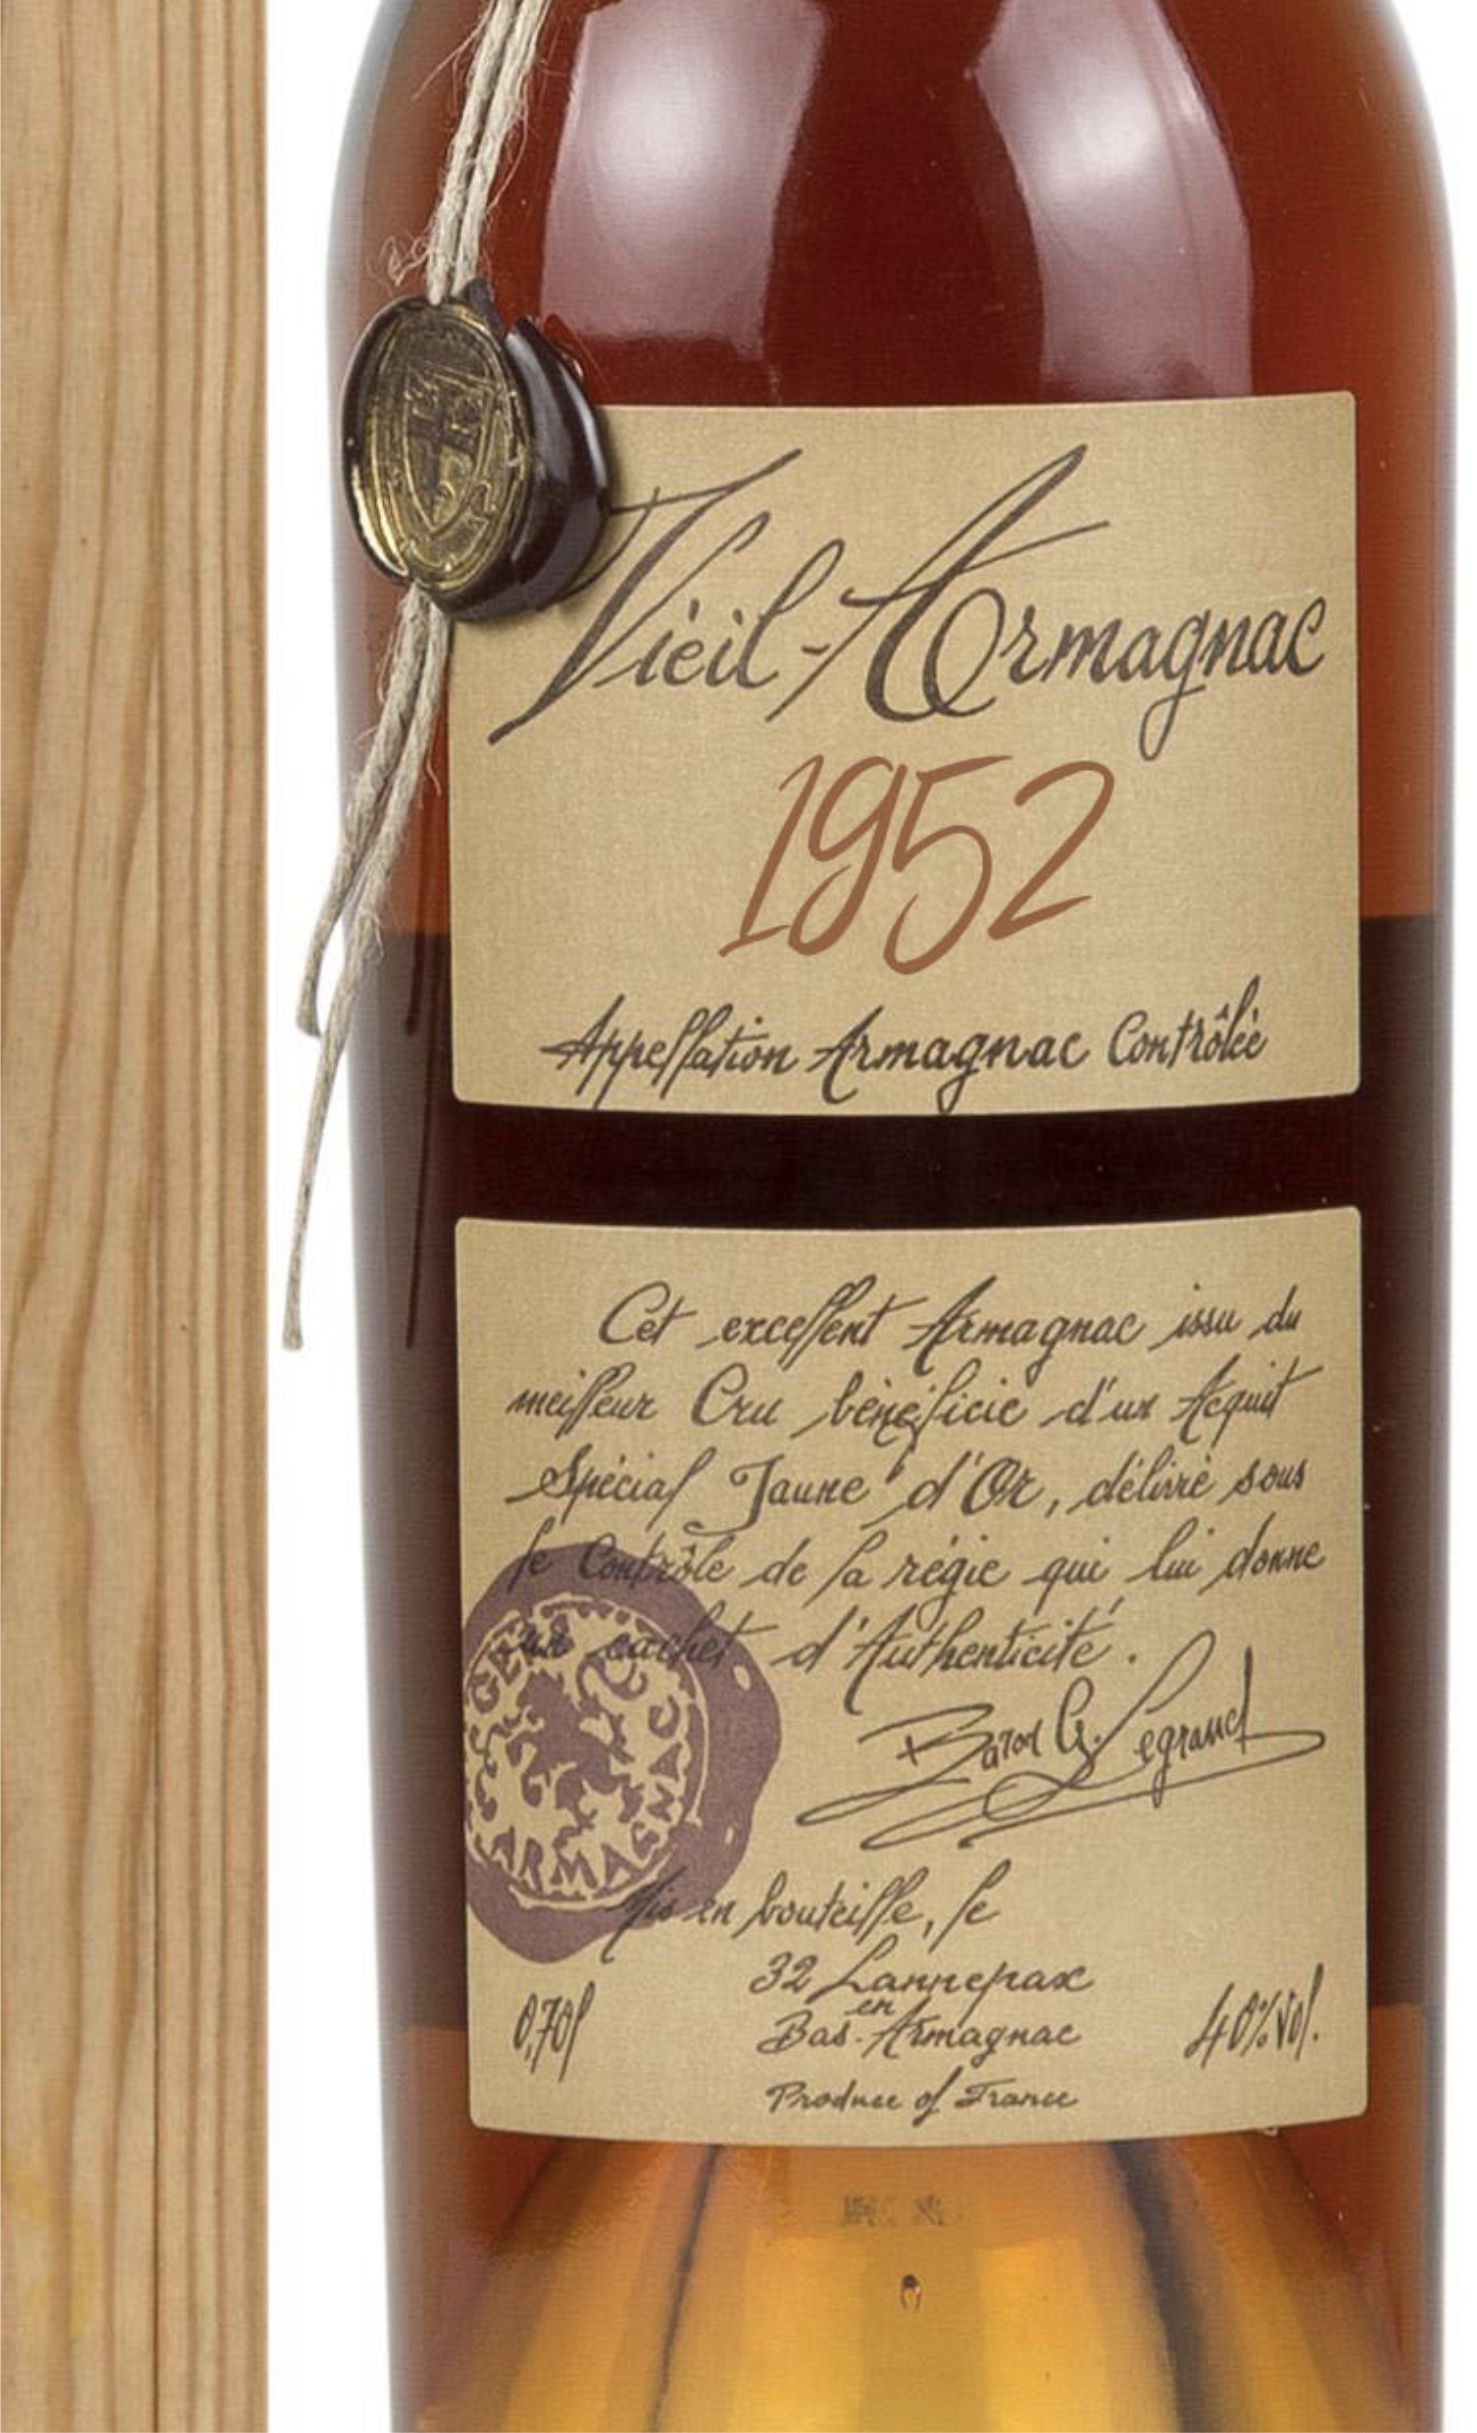 Vieil-Armagnac
1952
Appellation Armagnac Contrôlée
Cet excellent Armagnac issu du
meilleur Cru bénéficie d'un Acquit
Spécial Jaune d'Or, délivré sous
le Contrôle de la régie qui lui donne
un cachet d'Authenticité.
Baron G. Legrand
ARMAGNAC
Mis en bouteille, le
32 Lannepax
en
Bas-Armagnac
0,70l
40%Vol.
Produce of France